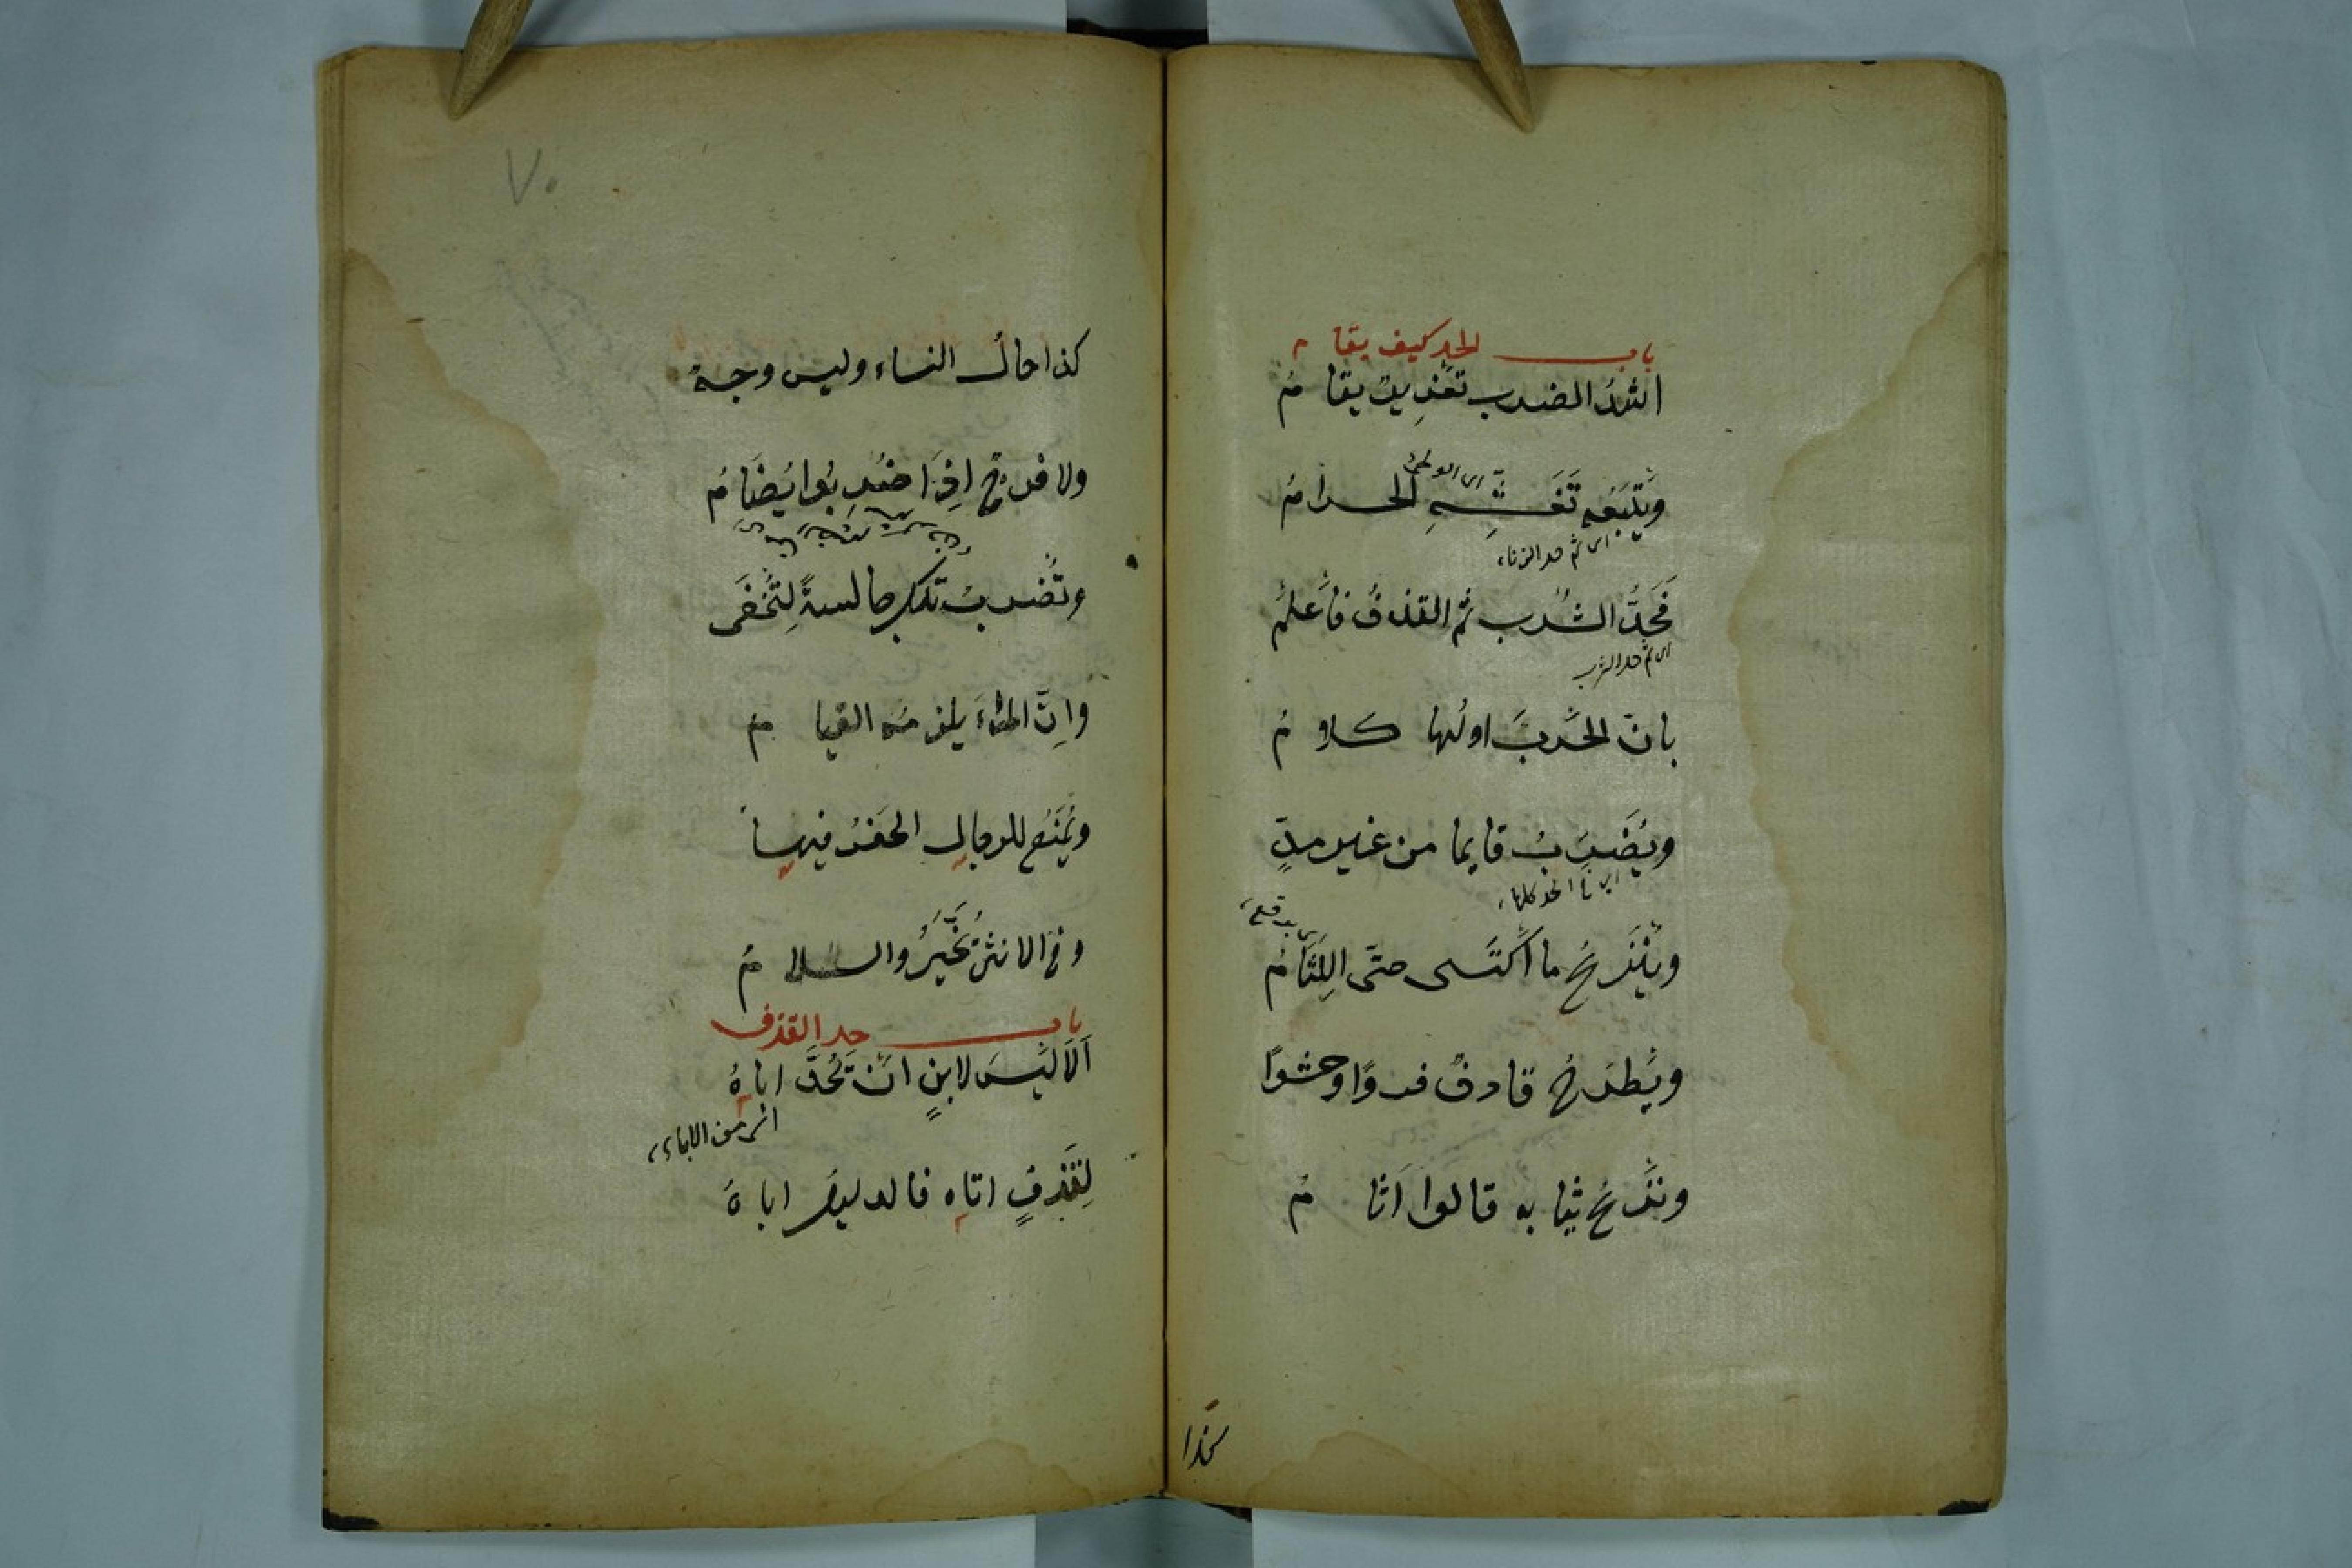 باب الحد كيف يقام
اشد الضرب تعذيب يقام
اى الوطئ
ويتبعه تغشيه الحرام
اى ثم حد الزناء
فحد الشرب ثم القذف فاعلم
اى ثم حد الشرب
بان الضرب اولها كلام
ويضرب قايما من غير مد
وينزع ما اكتسى حتى اللثام
ويطرح قاذف فروا وحشوا
ونزع ثيابه قالوا اثام
كذا
٧٠
كذا حال النساء وليس وجه
ولا فرج اذا ضربوا يضام
وتضرب تلك جالسة لتخفى
وان المرء يلزمه القيام
ويمنع للرجال الحفر فيها
وفى الانثى تخير والسلام
باب حد القذف
الا ليس لابن ان يحد اباه
من الاباء
لقذف اتاه فالدليل اباه